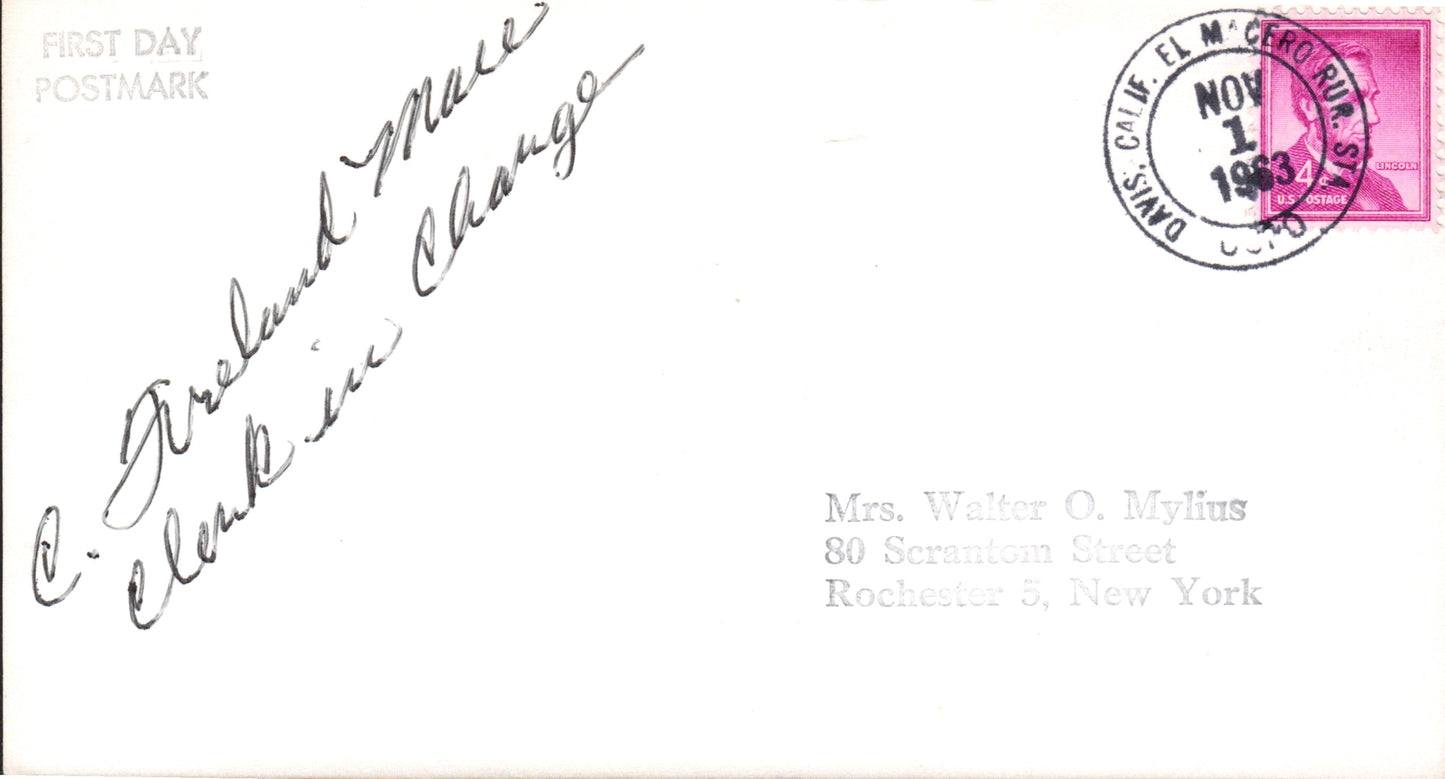 FIRST DAY
POSTMARK
C. Vreeland Mace
Clerk in Charge
DAVIS, CALIF. EL MACERO RUR. STA
NOV
1
1963
LINCOLN
4¢
U.S. POSTAGE
Mrs. Walter O. Mylius
80 Scrantom Street
Rochester 5, New York